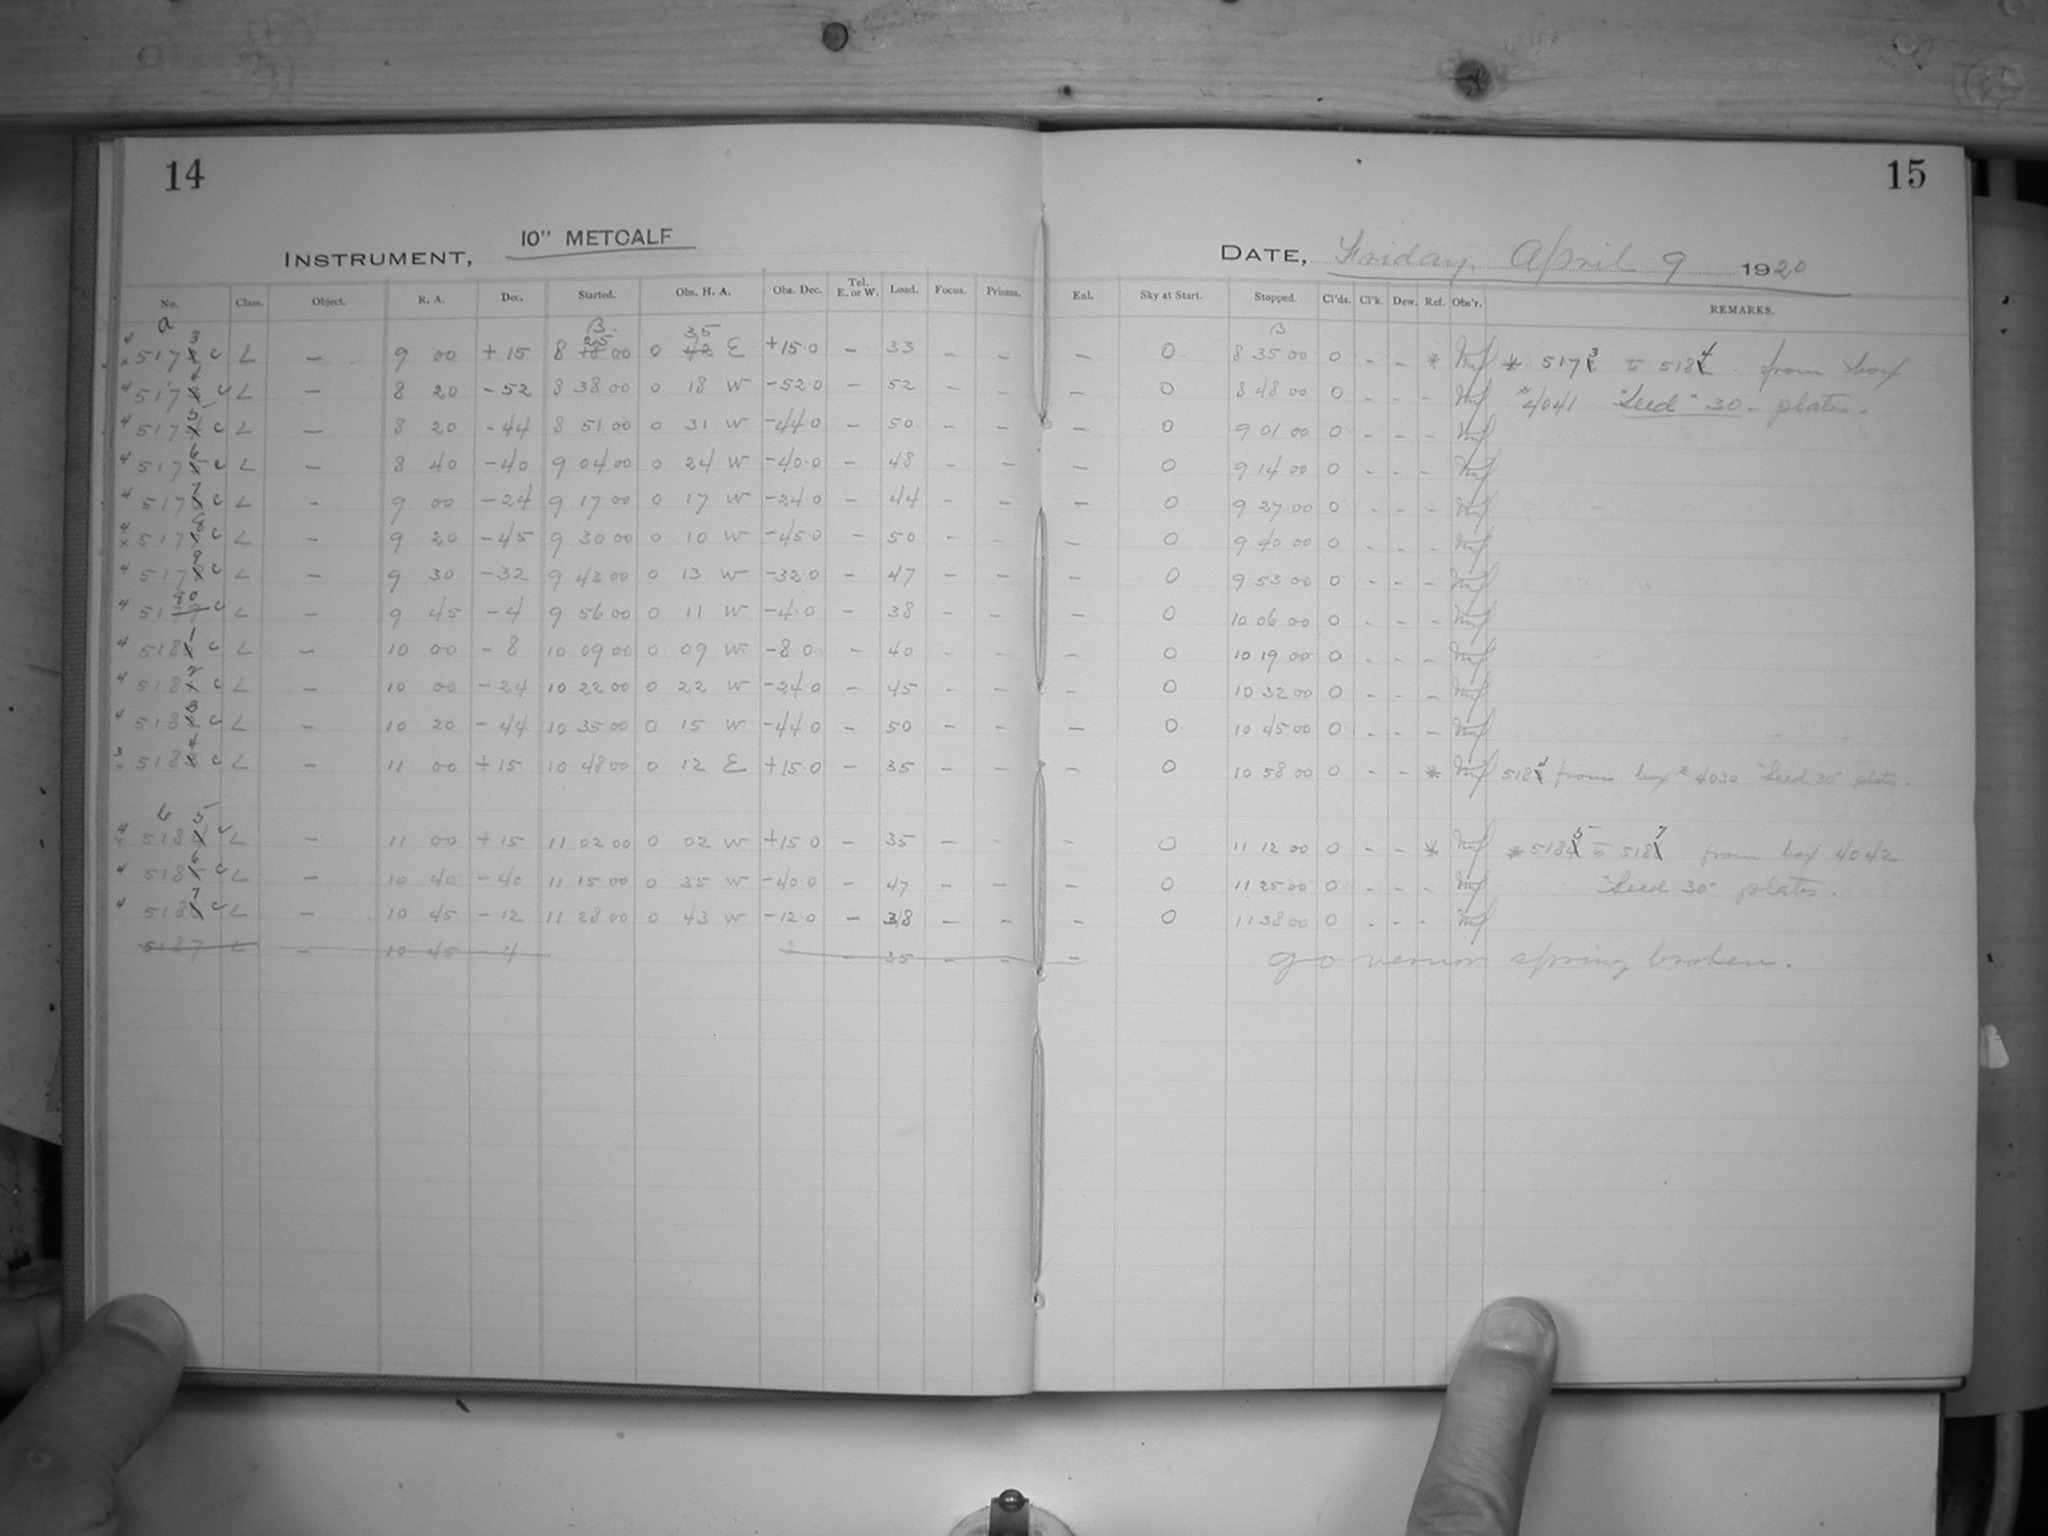 14
15
10" METCALF
INSTRUMENT,
DATE, Friday, April 9 1920
No. Class. Object. R. A. Dec. Started. Obs. H. A. Obs. Dec. Tel. E. or W. Load. Focus. Prisms. Enl. Sky at Start. Stopped. Cl'ds. Cl'k. Dew. Ref. Obs'r. REMARKS.
a
5173 c L – 9 00 +15 8 25 00 0 35 E +15.0 – 33 – – – 0 8 35 00 0 – – * * 5173 to 5184 from box
5174 c L – 8 20 -52 8 38 00 0 18 W -52.0 – 52 – – – 0 8 48 00 0 – – – #4041 "Seed" 30 – plates.
5175 c L – 8 20 -44 8 51 00 0 31 W -44.0 – 50 – – – 0 9 01 00 0 – – –
5176 c L – 8 40 -40 9 04 00 0 24 W -40.0 – 48 – – – 0 9 14 00 0 – – –
5177 c L – 9 00 -24 9 17 00 0 17 W -24.0 – 44 – – – 0 9 27 00 0 – – –
5178 c L – 9 20 -45 9 30 00 0 10 W -45.0 – 50 – – – 0 9 40 00 0 – – –
5179 c L – 9 30 -32 9 43 00 0 13 W -32.0 – 47 – – – 0 9 53 00 0 – – –
5180 c L – 9 45 -4 9 56 00 0 11 W -4.0 – 38 – – – 0 10 06 00 0 – – –
5181 c L – 10 00 -8 10 09 00 0 09 W -8.0 – 40 – – – 0 10 19 00 0 – – –
5182 c L – 10 00 -24 10 22 00 0 22 W -24.0 – 45 – – – 0 10 32 00 0 – – –
5183 c L – 10 20 -44 10 35 00 0 15 W -44.0 – 50 – – – 0 10 45 00 0 – – –
5184 c L – 11 00 +15 10 48 00 0 12 E +15.0 – 35 – – – 0 10 58 00 0 – – * 5184 from box #4030 "Seed 30" plates.
b
5185 c L – 11 00 +15 11 02 00 0 02 W +15.0 – 35 – – – 0 11 12 00 0 – – * * 5185 to 5187 from box 4042
5186 c L – 10 40 -40 11 15 00 0 35 W -40.0 – 47 – – – 0 11 25 00 0 – – – "Seed 30" plates.
5187 c L – 10 45 -12 11 28 00 0 43 W -12.0 – 38 – – – 0 11 38 00 0 – – –
5187 L – 10 45 -4 – 35 – – – governor spring broken.